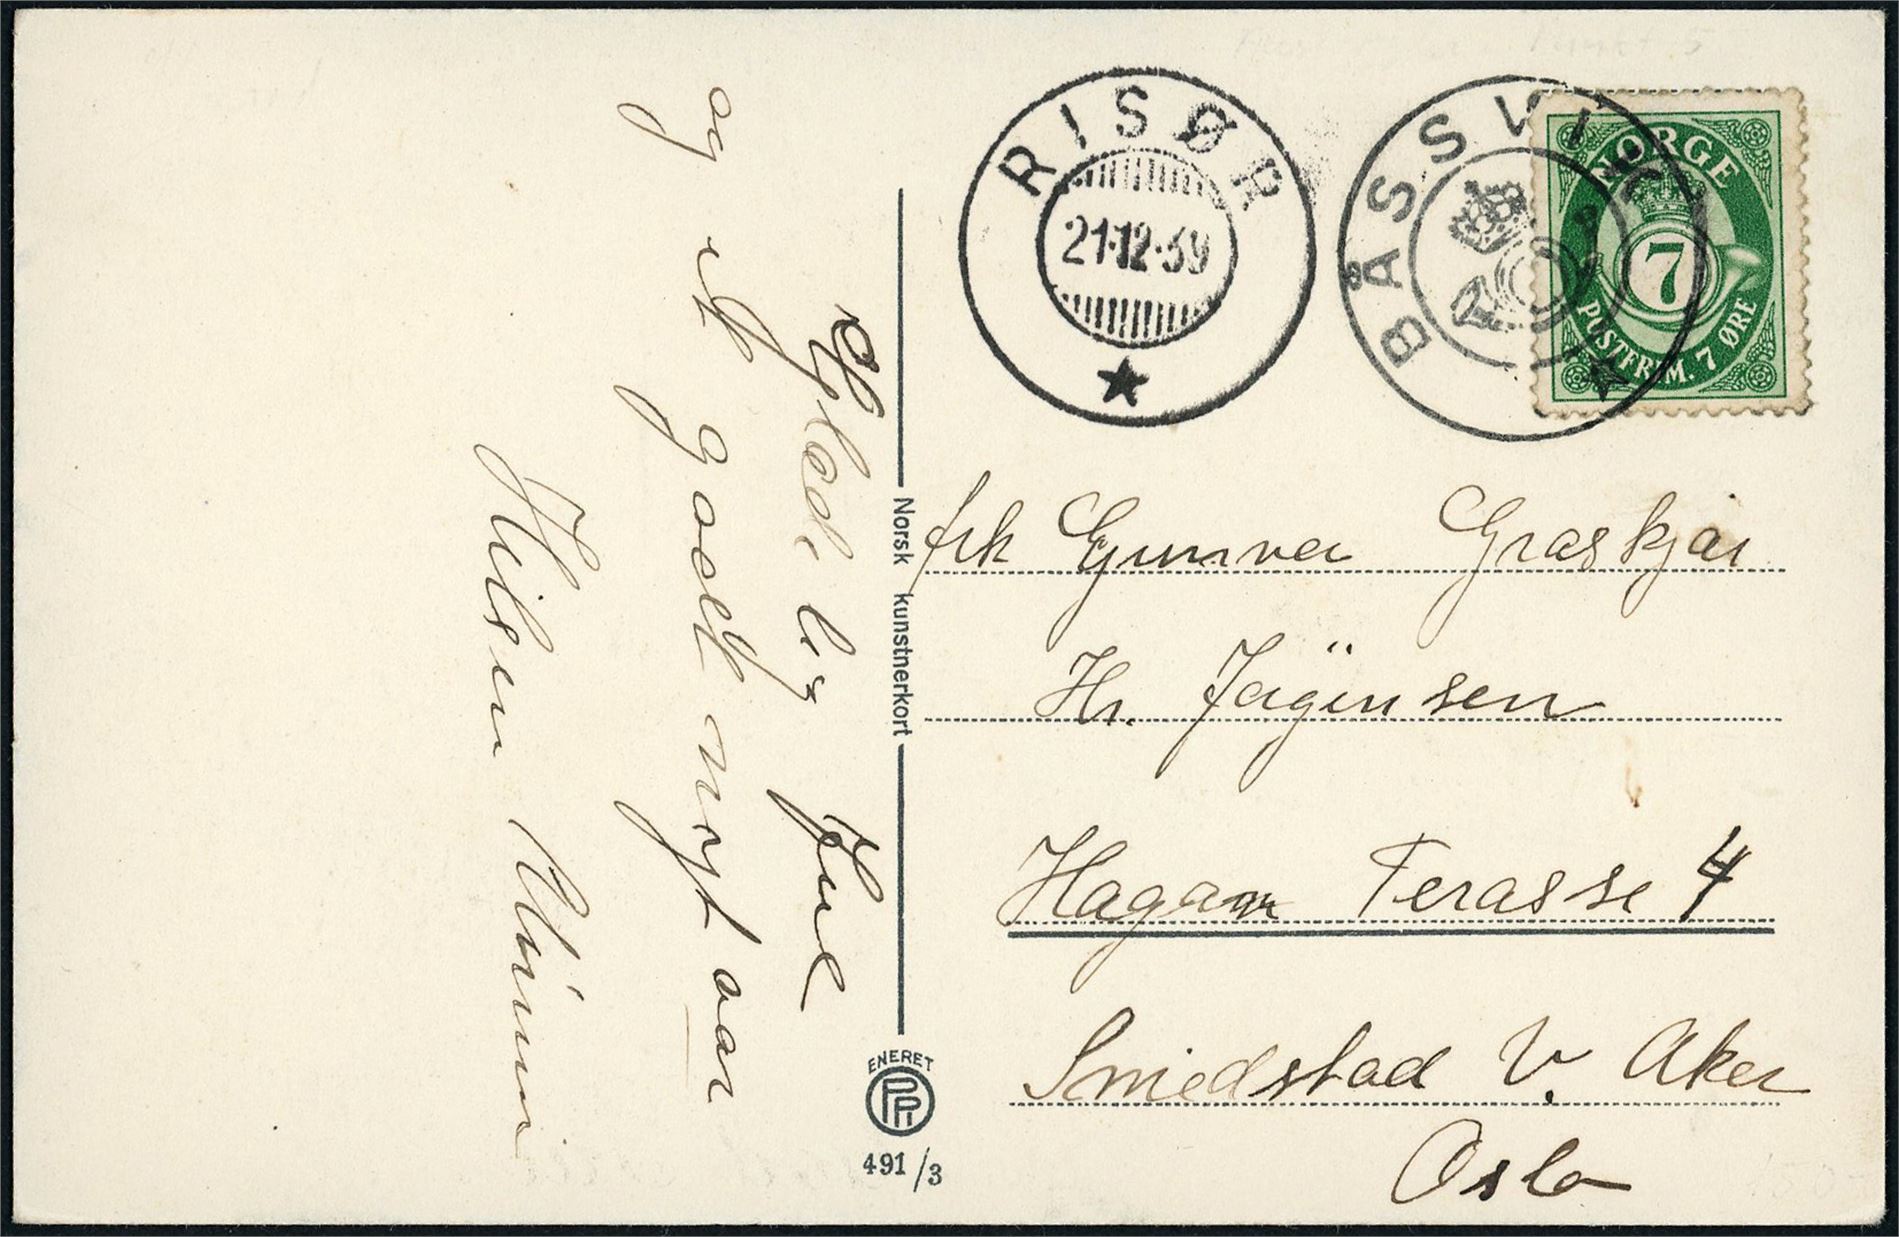 RISØR
21·12·39
BÅSSVIKA
NORGE
7
POSTFRIM. 7 ØRE
frk Gunver Graskjær
Hr. Jørginsen
Hagan Terasse 4
Smedstad V. Aker
Oslo
Norsk kunstnerkort
ENERET
491/3
Glædelig Jul
og et godt nytaar
Hilsen